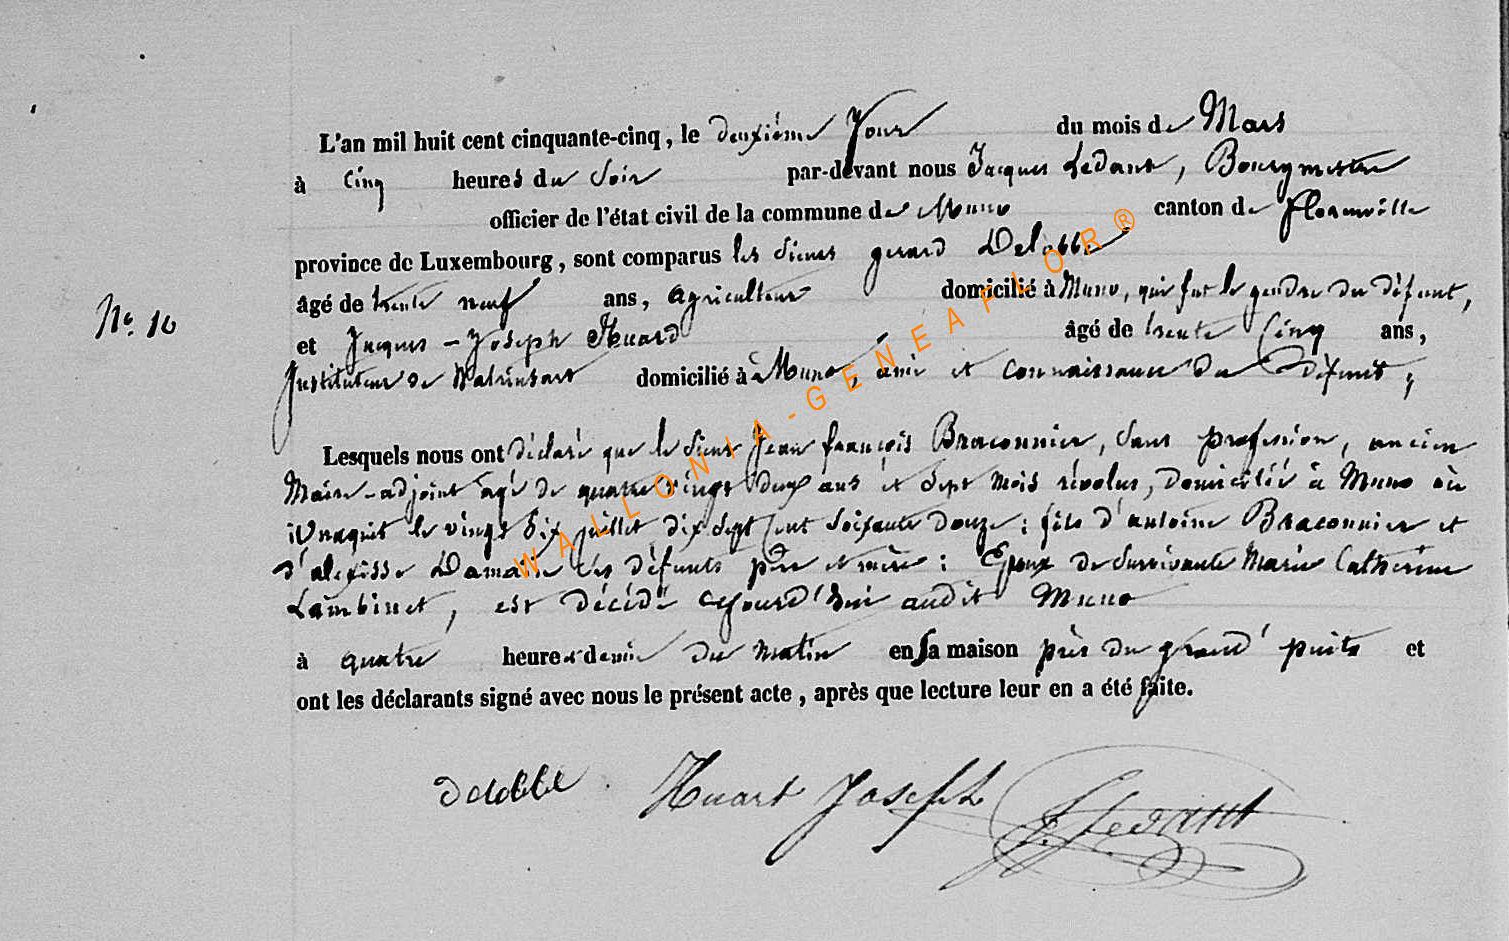 L'an mil huit cent cinquante-cinq, le deuxième Jour du mois de Mars
à cinq heures du Soir par-devant nous Jacques Ledant, Bourgmestre
officier de l'état civil de la commune de Muno canton de florenville
province de Luxembourg, sont comparus les Sieurs gerard Delobbe
âgé de trente neuf ans, agriculteur domicilié à Muno, qui fut le gendre du défunt,
N° 10
et Jacques-Joseph Huard âgé de trente Cinq ans,
Instituteur de domicilié à Muno, ami et connaissance du défunt,
Lesquels nous ont déclaré que le Sieur Jean françois Braconnier, Sans profession, ancien
Maire-adjoint agé de quatre vingt deux ans et Sept Mois révolus, Domicilié à Muno où
il naquit le vingt Six juillet dix Sept Cent Soixante Douze; fils d'antoine Braconnier et
d'alexisse Damain ses défunts père et mère; Epoux de Survivante Marie Catherine
Lambinet, est décédé cejourd'hui audit Muno
à quatre heures demie du Matin en Sa maison près du grand puits et
ont les déclarants signé avec nous le présent acte, après que lecture leur en a été faite.
Delobbe Huart Joseph J. Ledant
WALLONIA-GENEAFLOR®